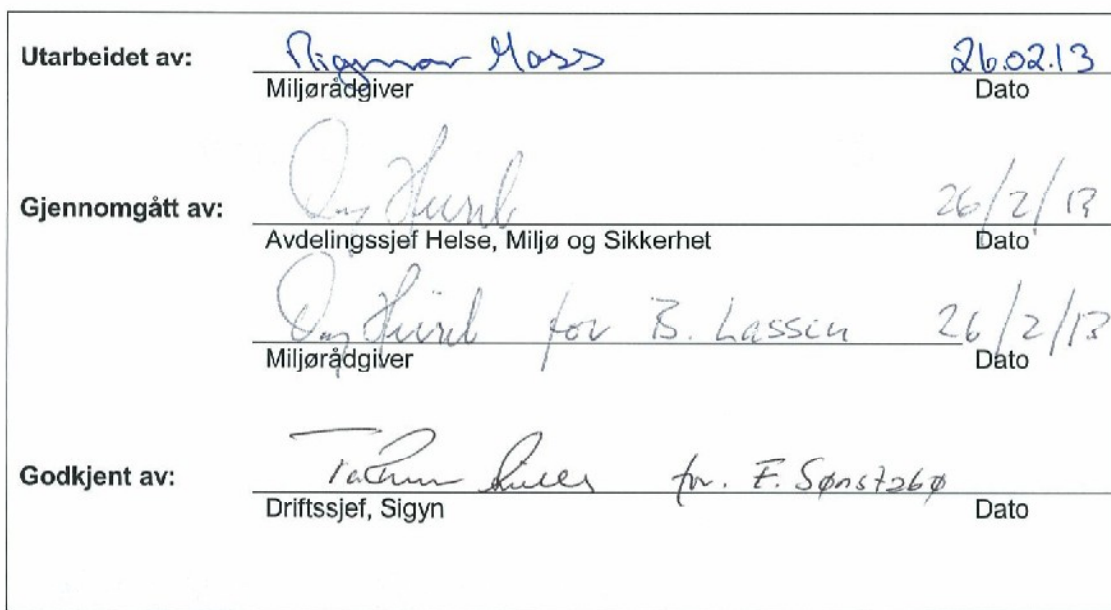 Utarbeidet av: 26.02.13
Miljørådgiver Dato
Gjennomgått av: 26/2/13
Avdelingssjef Helse, Miljø og Sikkerhet Dato
for B. Lassen 26/2/13
Miljørådgiver Dato
Godkjent av: for. E. Sønstabø
Driftssjef, Sigyn Dato